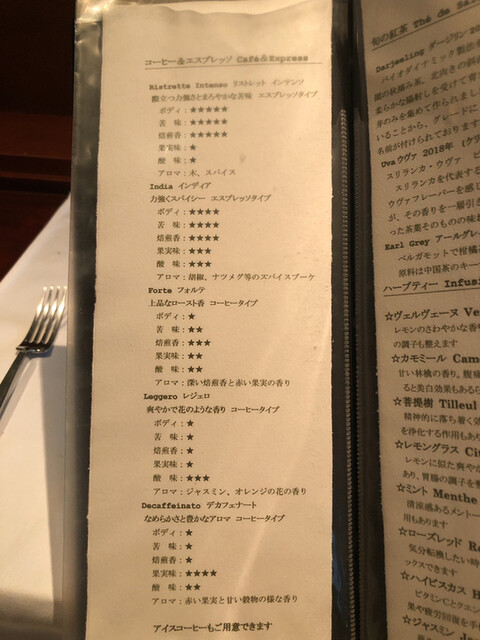 コーヒー＆エスプレッソ Café＆Express
Ristretto Intenso リストレット インテンソ
際立つ力強さとまろやかな苦味 エスプレッソタイプ
ボディ：★★★★★
苦 味：★★★★★
焙煎香：★★★★★
果実味：★
酸 味：★
アロマ：木、スパイス
India インディア
力強くスパイシー エスプレッソタイプ
ボディ：★★★★
苦 味：★★★★
焙煎香：★★★★
果実味：★★★
酸 味：★★★
アロマ：胡椒、ナツメグ等のスパイスブーケ
Forte フォルテ
上品なロースト香 コーヒータイプ
ボディ：★
苦 味：★★
焙煎香：★★★
果実味：★★
酸 味：★★
アロマ：深い焙煎香と赤い果実の香り
Leggero レジェロ
爽やかで花のような香り コーヒータイプ
ボディ：★
苦 味：★
焙煎香：★
果実味：★
酸 味：★★★
アロマ：ジャスミン、オレンジの花の香り
Decaffeinato デカフェナート
なめらかさと豊かなアロマ コーヒータイプ
ボディ：★
苦 味：★
焙煎香：★
果実味：★★★★
酸 味：★★
アロマ：赤い果実と甘い穀物の様な香り
アイスコーヒーもご用意できます
旬の紅茶 Thé de
Darjeeling ダージリン
バイオダイナミック製法
園の秋摘み茶。北向きの斜
柔らかな陽射しを受けて育
芽のみを集めて作られまし
いることから、グレードに
名前が付けられております
Uva ウヴァ 2018年
スリランカ・ウヴァ
スリランカを代表する
ウヴァフレーバーを感じ
が、その香りを一層引き
った茶葉そのものの味お
Earl Grey アールグレ
ベルガモットで柑橘
原料は中国茶のキー
ハーブティー Infus
☆ヴェルヴェーヌ Ve
レモンのさわやかな香り
の調子も整えます
☆カモミール Cam
甘い林檎の香り。
ると美白効果もある
☆菩提樹 Tilleul
精神的に落ち着く効
を浄化する作用もあり
☆レモングラス Cit
レモンに似た爽やか
あり、胃腸の調子を
☆ミント Menthe
清涼感あるメントー
用もあります
☆ローズレッド R
気分転換したい時
ックスできます
☆ハイビスカス H
ビタミンCとクエン
果や疲労回復を手
☆ジャスミン